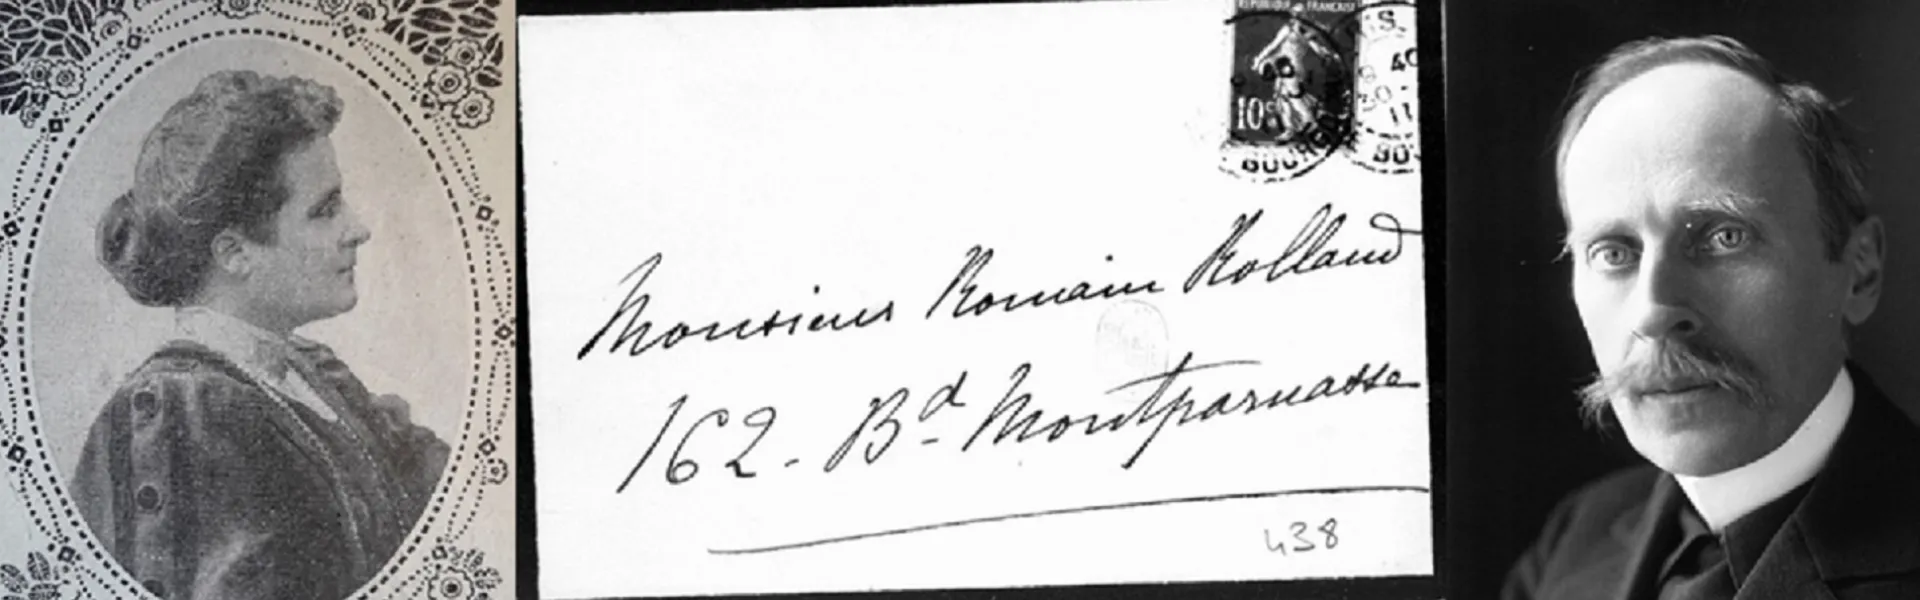 REPUBLIQUE FRANCAISE
10c
Monsieur Romain Rolland
162 - Bd - Montparnasse
438